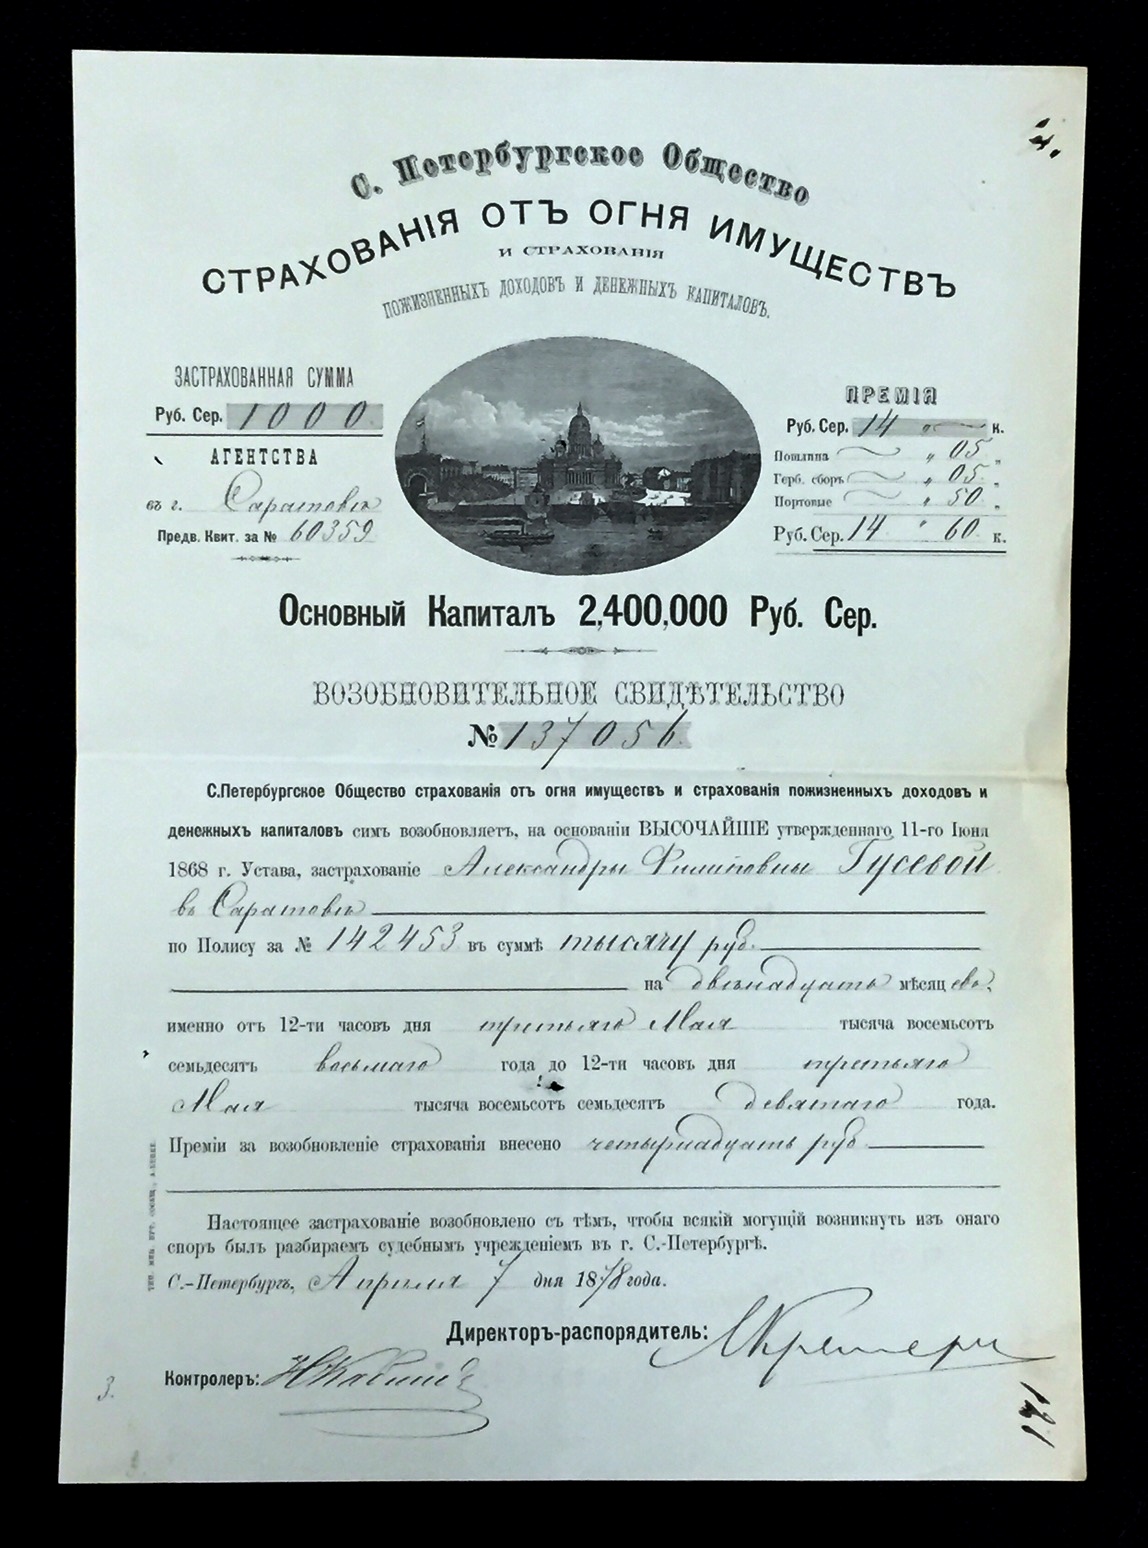 С. Петербургское Общество
СТРАХОВАНІЯ ОТЪ ОГНЯ ИМУЩЕСТВЪ
И СТРАХОВАНІЯ
ПОЖИЗНЕННЫХЪ ДОХОДОВЪ И ДЕНЕЖНЫХЪ КАПИТАЛОВЪ.
ЗАСТРАХОВАННАЯ СУММА
Руб. Сер. 1000
АГЕНТСТВА
въ г. Саратовѣ
Предв. Квит. за № 60359
ПРЕМІЯ
Руб. Сер. 14 " — к.
Пошлина " 05 "
Герб. сборъ " 05 "
Портовые " 50 "
Руб. Сер. 14 " 60 к.
Основный Капиталъ 2,400,000 Руб. Сер.
ВОЗОБНОВИТЕЛЬНОЕ СВИДѢТЕЛЬСТВО
№ 137056
С.Петербургское Общество страхованія отъ огня имуществъ и страхованія пожизненныхъ доходовъ и
денежныхъ капиталовъ симъ возобновляетъ, на основаніи ВЫСОЧАЙШЕ утвержденнаго 11-го Іюня
1868 г. Устава, застрахованіе Александры Филиповны Гусевой
въ Саратовѣ
по Полису за № 142453 въ суммѣ тысячу руб.
на двѣнадцать мѣсяцевъ,
именно отъ 12-ти часовъ дня третьяго Мая тысяча восемьсотъ
семьдесятъ восьмаго года до 12-ти часовъ дня третьяго
Мая тысяча восемьсотъ семьдесятъ девятаго года.
Преміи за возобновленіе страхованія внесено четырнадцать руб
Настоящее застрахованіе возобновлено съ тѣмъ, чтобы всякій могущій возникнуть изъ онаго
споръ былъ разбираемъ судебнымъ учрежденіемъ въ г. С.-Петербургѣ.
С.-Петербургъ, Апрѣля 7 дня 1878 года.
Директоръ-распорядитель:
Контролеръ:
3.
121